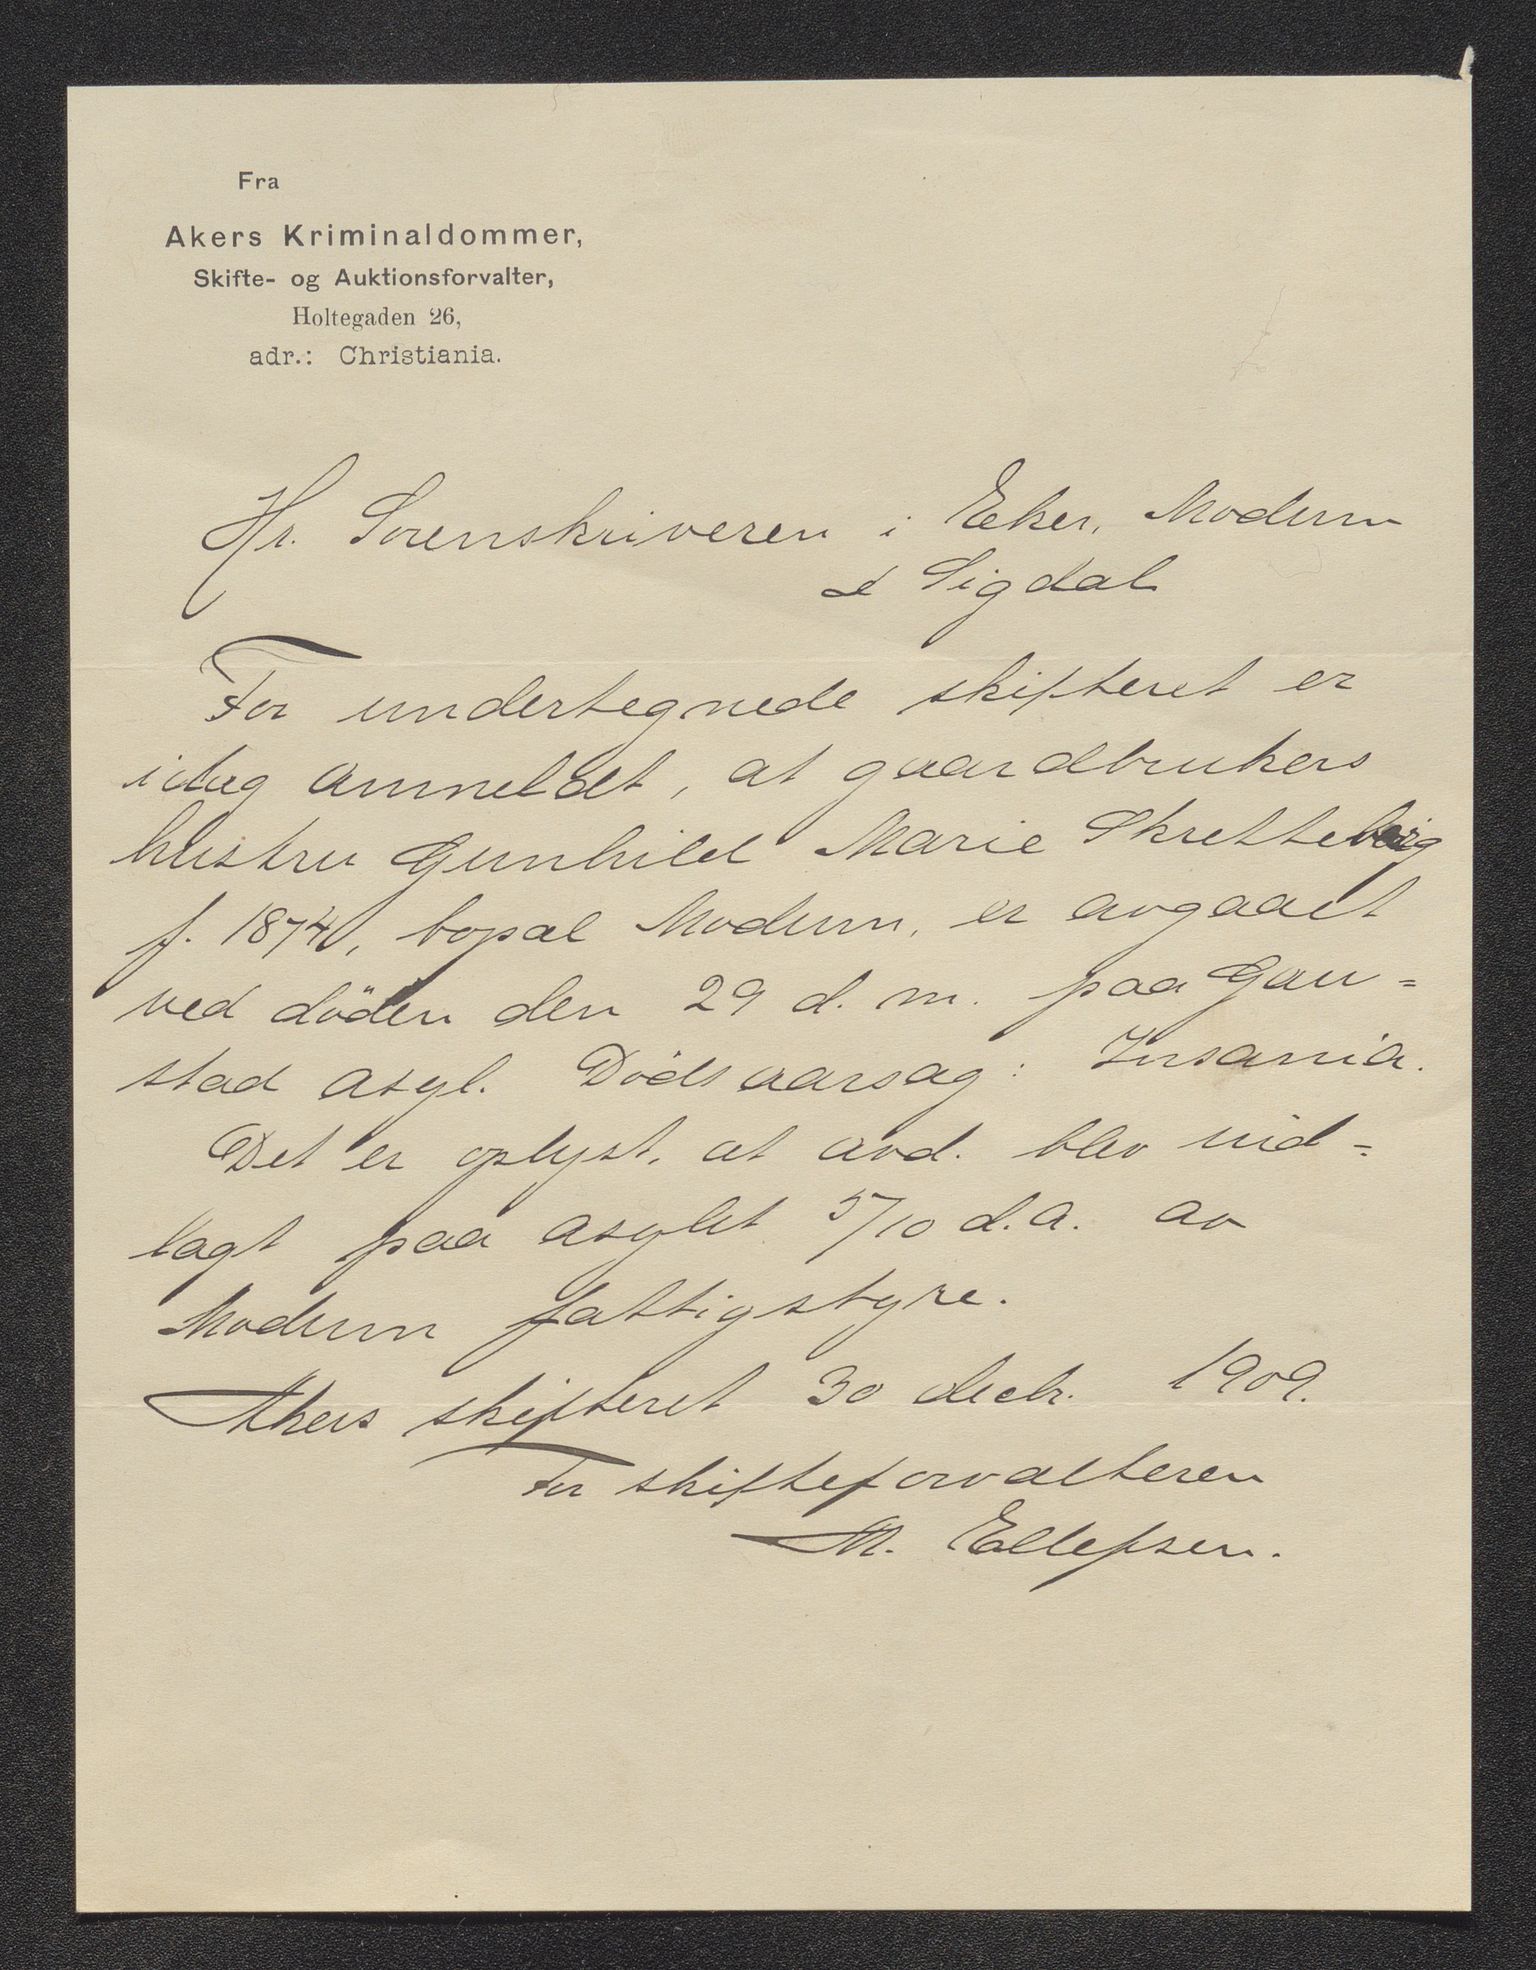 Fra
Akers Kriminaldommer,
Skifte- og Auktionsforvalter,
Holtegaden 26,
adr.: Christiania.
Hr. Sorenskriveren i Eker, Modum
& Sigdal
For undertegnede skifteret er
idag anmeldt, at gaardbrukers
hustru Gunhild Marie Skretteberg
f. 1874, bopæl Modum, er avgaaet
ved döden den 29 d. m. paa Gau=
stad asyl. Dödsaarsag: Insania.
Det er oplyst, at avd. blev ind=
lagt paa asylet 5/10 d.a. av
Modum fattigstyre.
Akers skifteret 30 decbr. 1909.
For skifteforvalteren
M. Ellefsen.